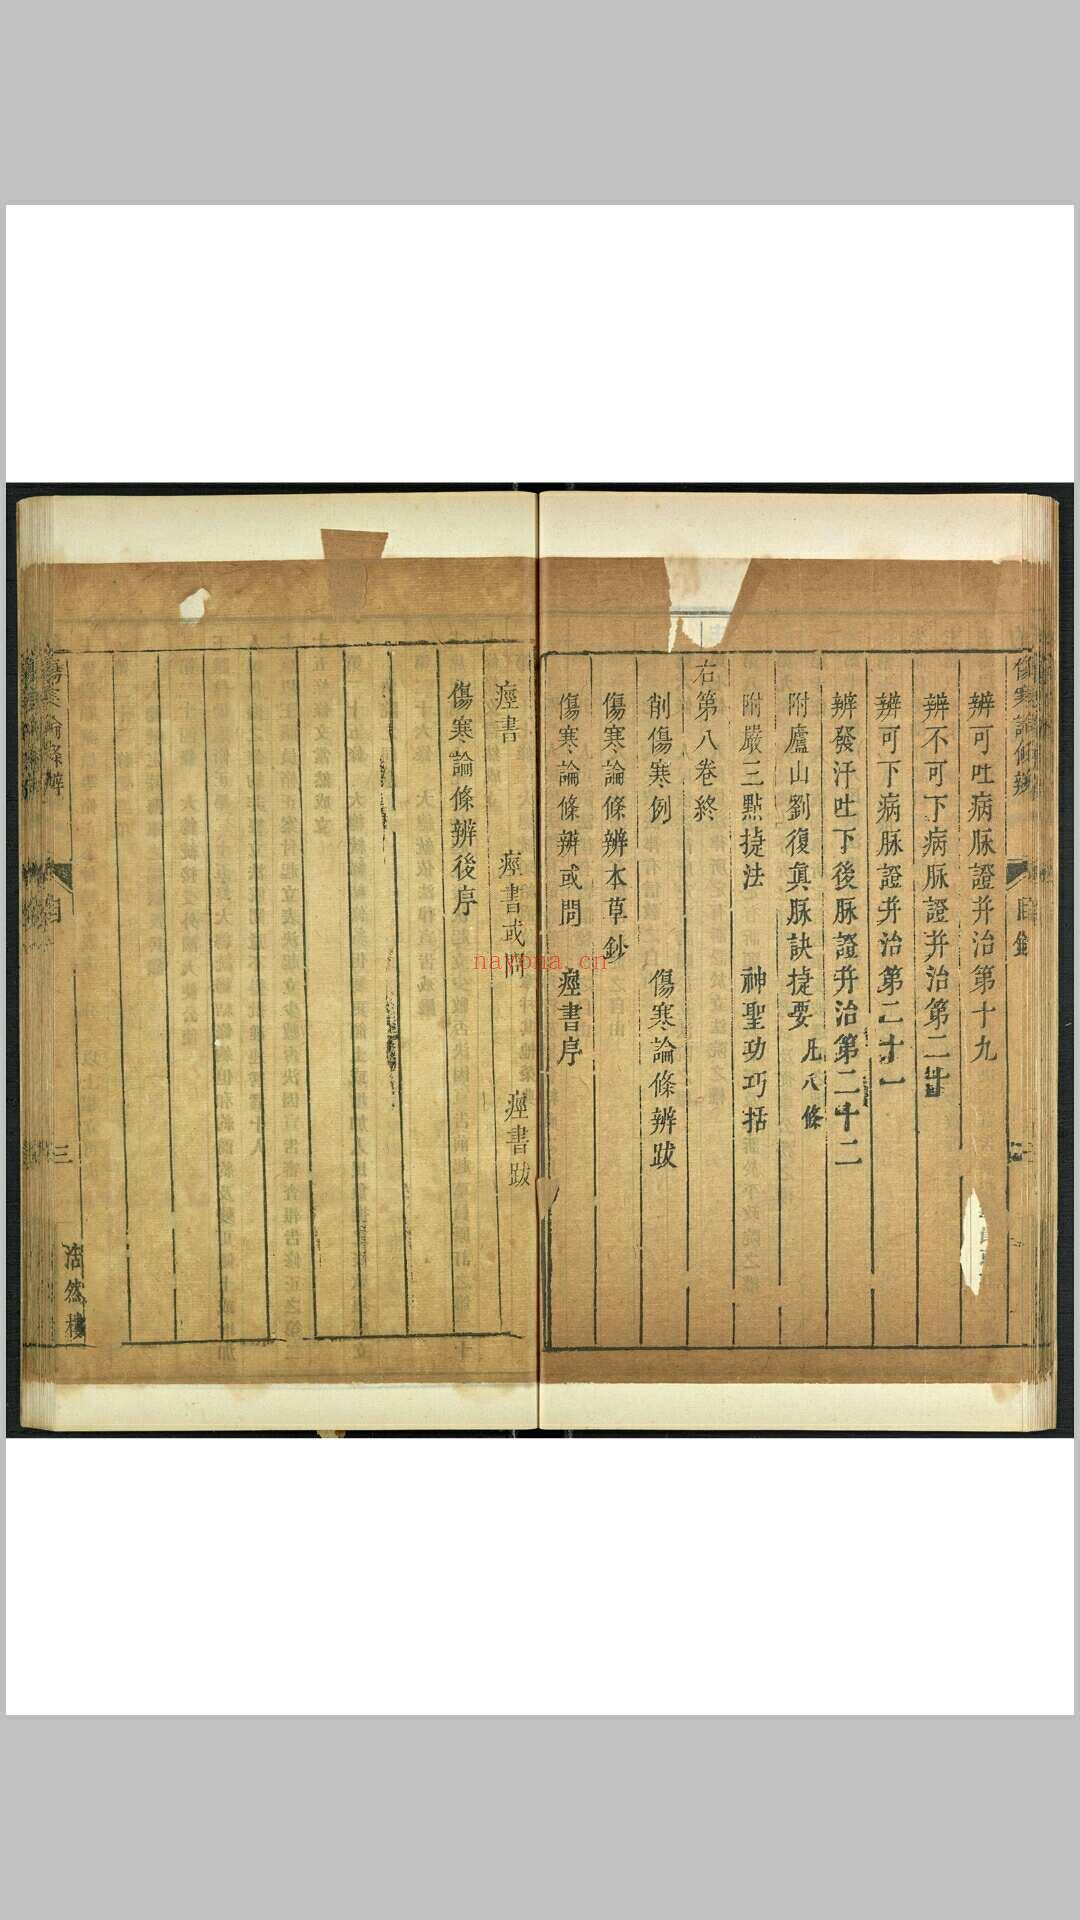 傷寒論條辨 目錄
辨可吐病脉證并治第十九
辨不可下病脉證并治第二十
辨可下病脉證并治第二十一
辨發汗吐下後脉證并治第二十二
附廬山劉復眞脉訣捷要 凡八條
附嚴三點捷法 神聖功巧括
右第八卷終
削傷寒例 傷寒論條辨跋
傷寒論條辨本草鈔
傷寒論條辨或問 痙書序
痙書 痙書或問 痙書跋
傷寒論條辨後序
傷寒論條辨 目 三 浩然樓
nayona.cn